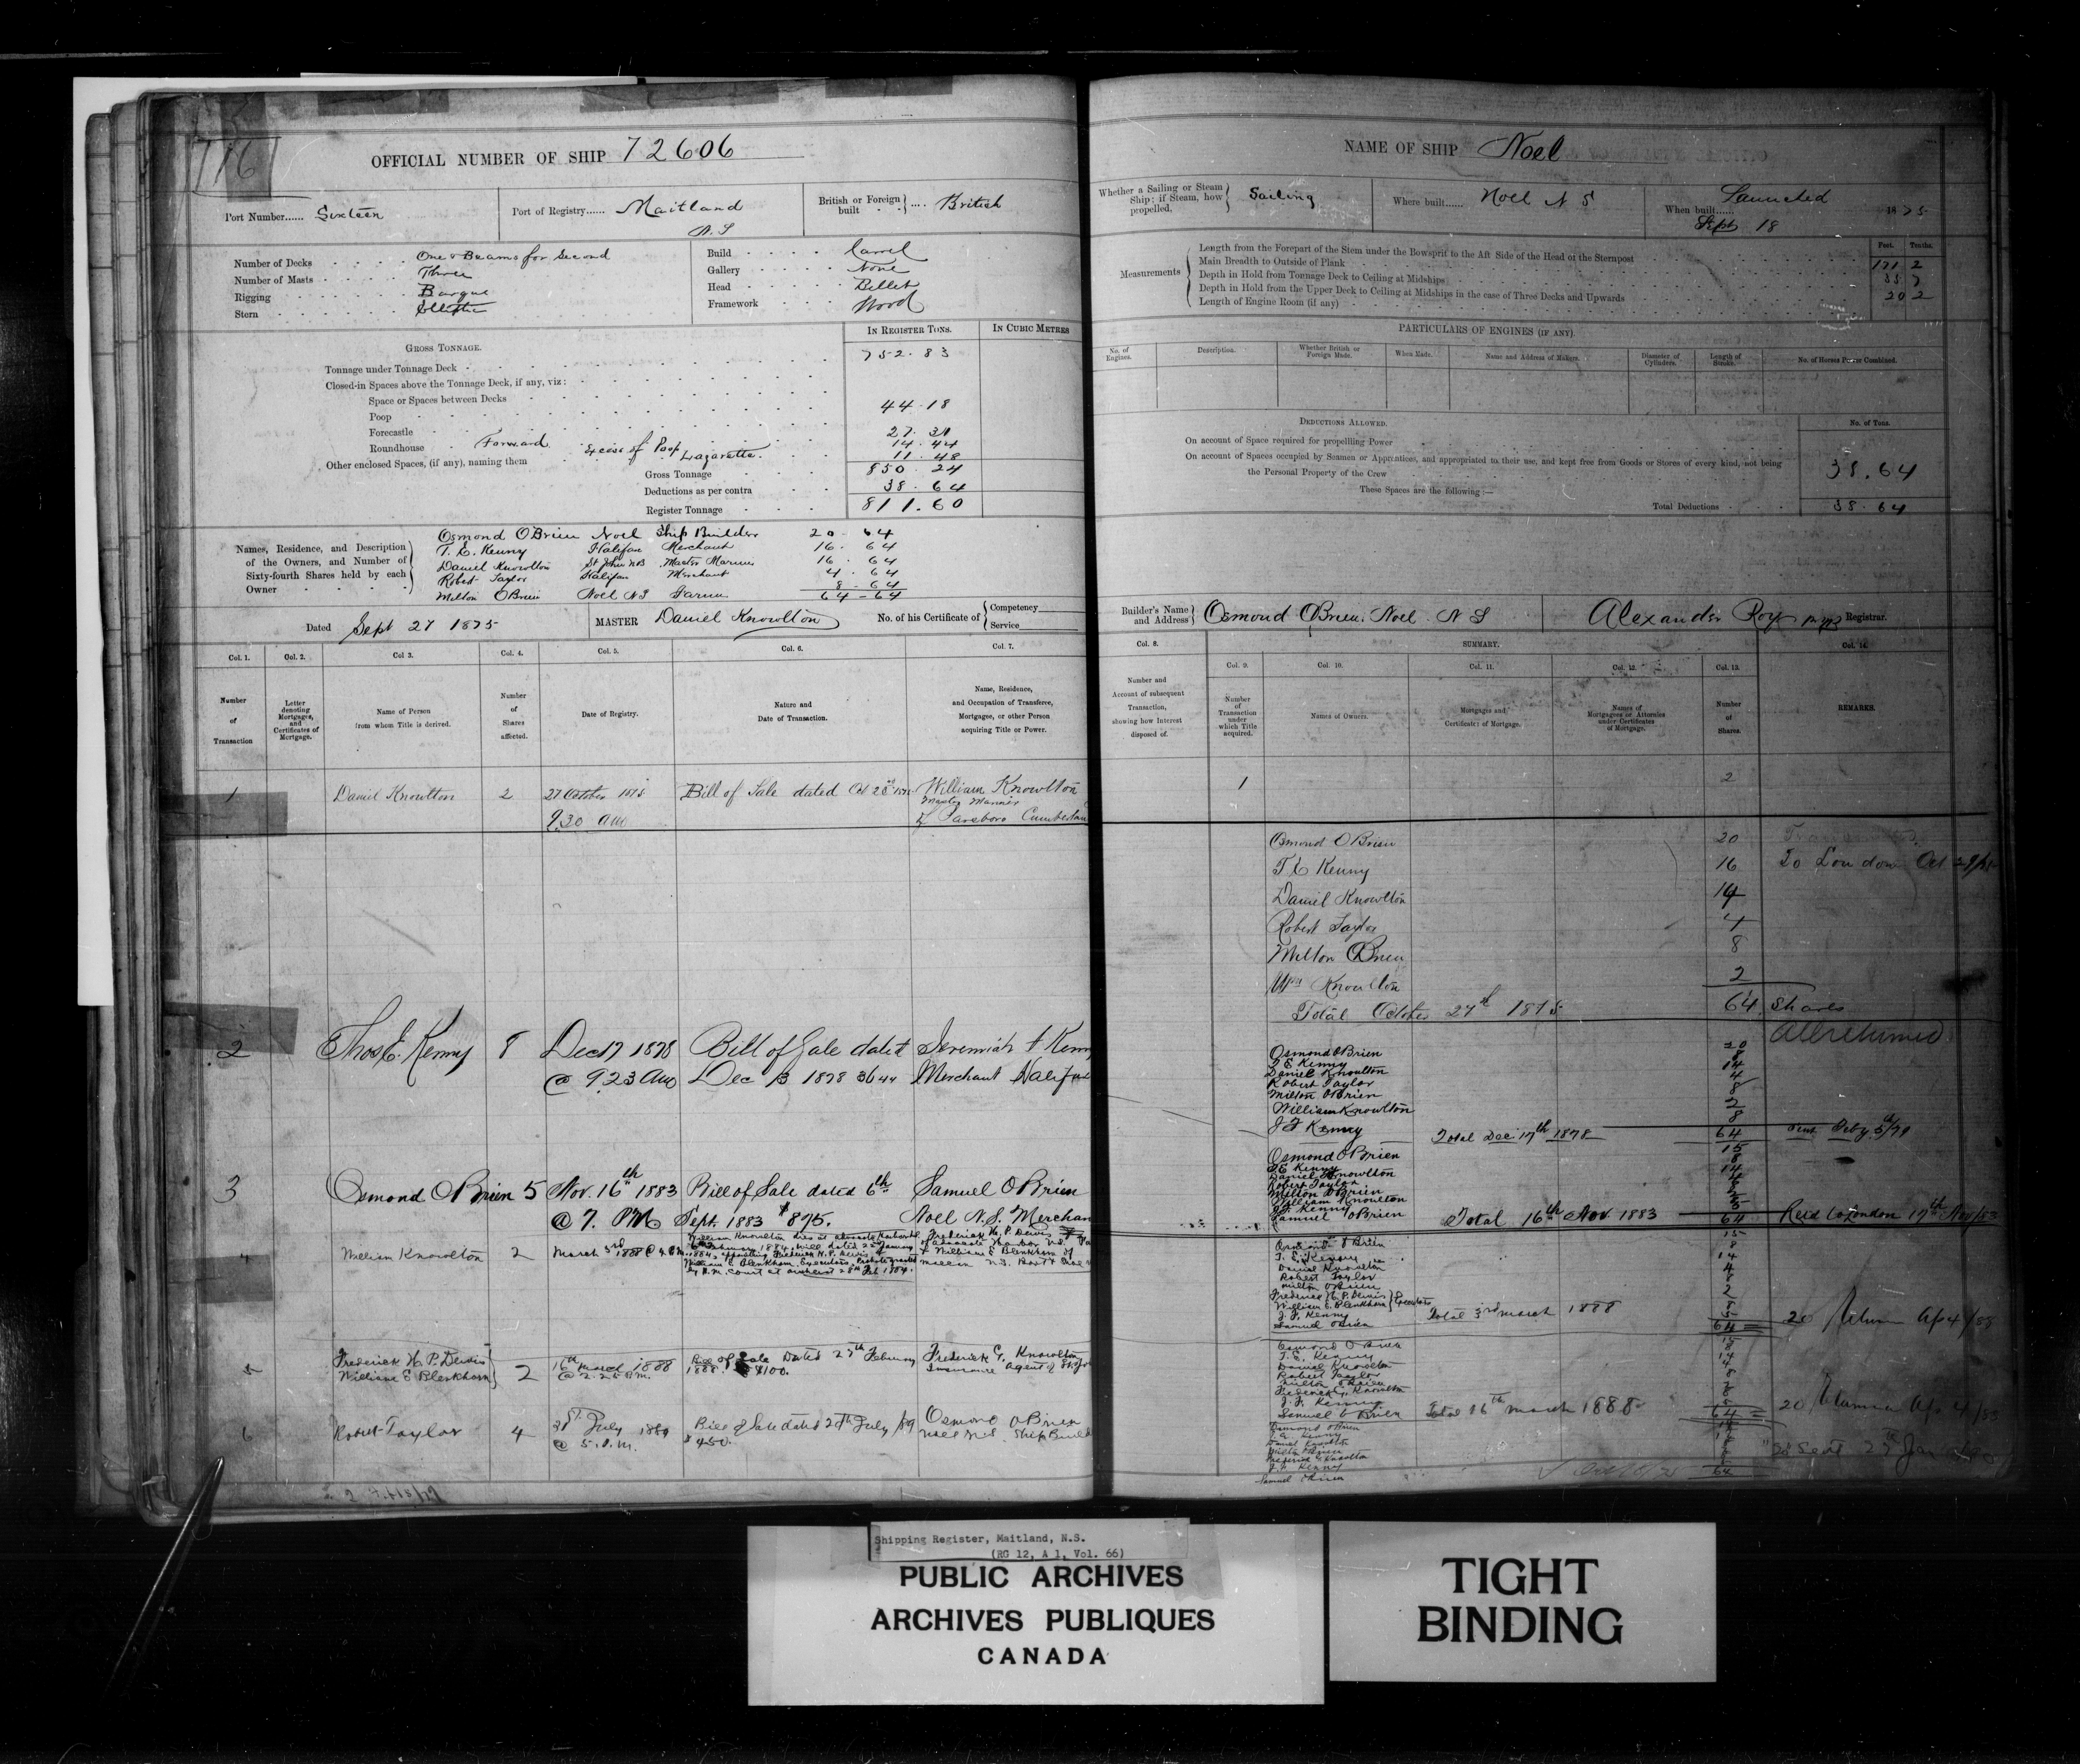 716
OFFICIAL NUMBER OF SHIP 72606
Port Number...... Sixteen
Port of Registry...... Maitland
N.S
British or Foreign built } .... British
Number of Decks One & Beams for Second
Number of Masts Three
Rigging Barque
Stern Elliptic
Build Carvel
Gallery None
Head Billet
Framework Wood
IN REGISTER TONS.
IN CUBIC METRES
GROSS TONNAGE.
Tonnage under Tonnage Deck 752.83
Closed-in Spaces above the Tonnage Deck, if any, viz:
Space or Spaces between Decks
Poop 44.18
Forecastle
Roundhouse Forward
Other enclosed Spaces, (if any), naming them Excess of Poop Lazarette.
14.44
11.48
Gross Tonnage 850.24
Deductions as per contra 38.64
Register Tonnage 811.60
Names, Residence, and Description of the Owners, and Number of Sixty-fourth Shares held by each Owner
Osmond OBrien Noel Ship Builder 20 - 64
T. E. Kenny Halifax Merchant 16 . 64
Daniel Knowlton St John NB Master Mariner 16 . 64
Robert Taylor Halifax Merchant 4 . 64
Milton OBrien Noel NS 8 - 64
64 - 64
Dated Sept 27 1875
MASTER Daniel Knowlton
No. of his Certificate of { Competency
Service
Col. 1. Col. 2. Col 3. Col. 4. Col. 5. Col. 6. Col. 7.
Number of Transaction
Letter denoting Mortgages, and Certificates of Mortgage.
Name of Person from whom Title is derived.
Number of Shares affected.
Date of Registry.
Nature and Date of Transaction.
Name, Residence, and Occupation of Transferee, Mortgagee, or other Person acquiring Title or Power.
1 Daniel Knowlton 2 27 October 1875 Bill of Sale dated Oct William Knowlton
9.30 am
Master Mariner
of Parsboro Cumberlan
2 Thos E. Kenny 8 Dec 17 1878 Bill of Sale dated Jeremiah F Kenny
@ 9.23 am Dec 13 1878 Merchant Halifax
3 Osmond OBrien 5 Nov. 16th 1883 Bill of Sale dated 6th Samuel OBrien
@ 7. PM Sept. 1883 $875. Noel N.S. Merchan
4 William Knowlton 2 March 3rd 1888
William Knowlton died at Advocate Harbour
1884, will dated 2nd January
1884, appointing Frederick H. P. Dewis &
William E Blenkhorn, Executors, Probate granted
by court at Amherst 28th Feb 1884.
Frederick H. P. Dewis
of Advocate Harbor N.S.
& William E Blenkhorn of
5 Frederick H. P. Dewis
William E Blenkhorn } 2
16th March 1888
@ 2.25 P.M.
Bill of Sale Dated 27th February
1888. $100.
Frederick G. Knowlton
Insurance agent of St Jo
6 Robert Taylor 4
July 1889
@ 5. P.M.
Bill of Sale dated July /89
$450.
Osmond OBrien
Noel N.S Ship Build
NAME OF SHIP Noel
Whether a Sailing or Steam Ship: if Steam, how propelled. } Sailing
Where built...... Noel N S
When built...... Launched
Sept 18 1875
Measurements
Feet. Tenths.
Length from the Forepart of the Stem under the Bowsprit to the Aft Side of the Head of the Sternpost 171 2
Main Breadth to Outside of Plank
Depth in Hold from Tonnage Deck to Ceiling at Midships 20 2
Depth in Hold from the Upper Deck to Ceiling at Midships in the case of Three Decks and Upwards
Length of Engine Room (if any)
PARTICULARS OF ENGINES (IF ANY).
No. of Engines.
Description.
Whether British or Foreign Made.
When Made.
Name and Address of Makers.
Diameter of Cylinders.
Length of Stroke.
No. of Horses Power Combined.
DEDUCTIONS ALLOWED.
No. of Tons.
On account of Space required for propelling Power
On account of Spaces occupied by Seamen or Apprentices, and appropriated to their use, and kept free from Goods or Stores of every kind, not being
the Personal Property of the Crew 38.64
These Spaces are the following:—
Total Deductions 38.64
Builder's Name and Address } Osmond OBrien. Noel. N S
Alexander Roy Registrar.
Col. 8.
SUMMARY.
Col. 14.
Col. 9. Col. 10. Col. 11. Col. 12. Col. 13.
Number and Account of subsequent Transaction, showing how Interest disposed of.
Number of Transaction under which Title acquired.
Names of Owners.
Mortgages and Certificates of Mortgage.
Names of Mortgagees or Attornies under Certificates of Mortgage.
Number of Shares.
REMARKS.
1 2
Osmond OBrien 20
T E Kenny 16 To London Oct
Daniel Knowlton 14
Robert Taylor 4
Milton OBrien 8
Wm Knowlton 2
Total October 27th 1875 64 Shares
Osmond OBrien 20
T E Kenny 8
Daniel Knowlton 14
Robert Taylor 4
Milton OBrien 8
William Knowlton 2
J F Kenny 8
Total Dec 17th 1878 64
Osmond OBrien 15
T E Kenny 8
Daniel Knowlton 14
Robert Taylor
Milton OBrien
William Knowlton
J F Kenny
Samuel OBrien
Total 16th Nov. 1883 64
Osmond OBrien 15
T. E. Kenny 8
Daniel Knowlton 14
Robert Taylor 4
Milton OBrien 8
Frederick H. P. Dewis
William E. Blenkhorn } Executors 2
J. F. Kenny 8
Samuel OBrien 5
Total 3rd March 1888 64
Osmond OBrien 15
T. E. Kenny 8
Daniel Knowlton 14
Robert Taylor 4
Milton OBrien 8
Frederick G. Knowlton
J. F. Kenny
Samuel OBrien
Total 16th March 1888 64
Osmond OBrien
T. E. Kenny
Daniel Knowlton
Milton OBrien
Frederick G Knowlton
J. F. Kenny
Samuel OBrien
64
Shipping Register, Maitland, N.S.
(RG 12, A 1, Vol. 66)
PUBLIC ARCHIVES
ARCHIVES PUBLIQUES
CANADA
TIGHT
BINDING